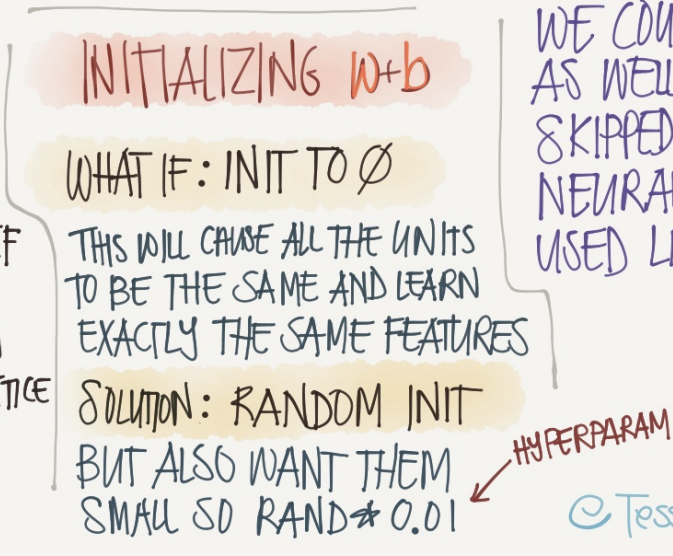 INITIALIZING w+b
WHAT IF: INIT TO Ø
THIS WILL CAUSE ALL THE UNITS
TO BE THE SAME AND LEARN
EXACTLY THE SAME FEATURES
SOLUTION: RANDOM INIT
BUT ALSO WANT THEM
SMALL SO RAND * 0.01
HYPERPARAM
WE
AS WELL
SKIPPED
USED